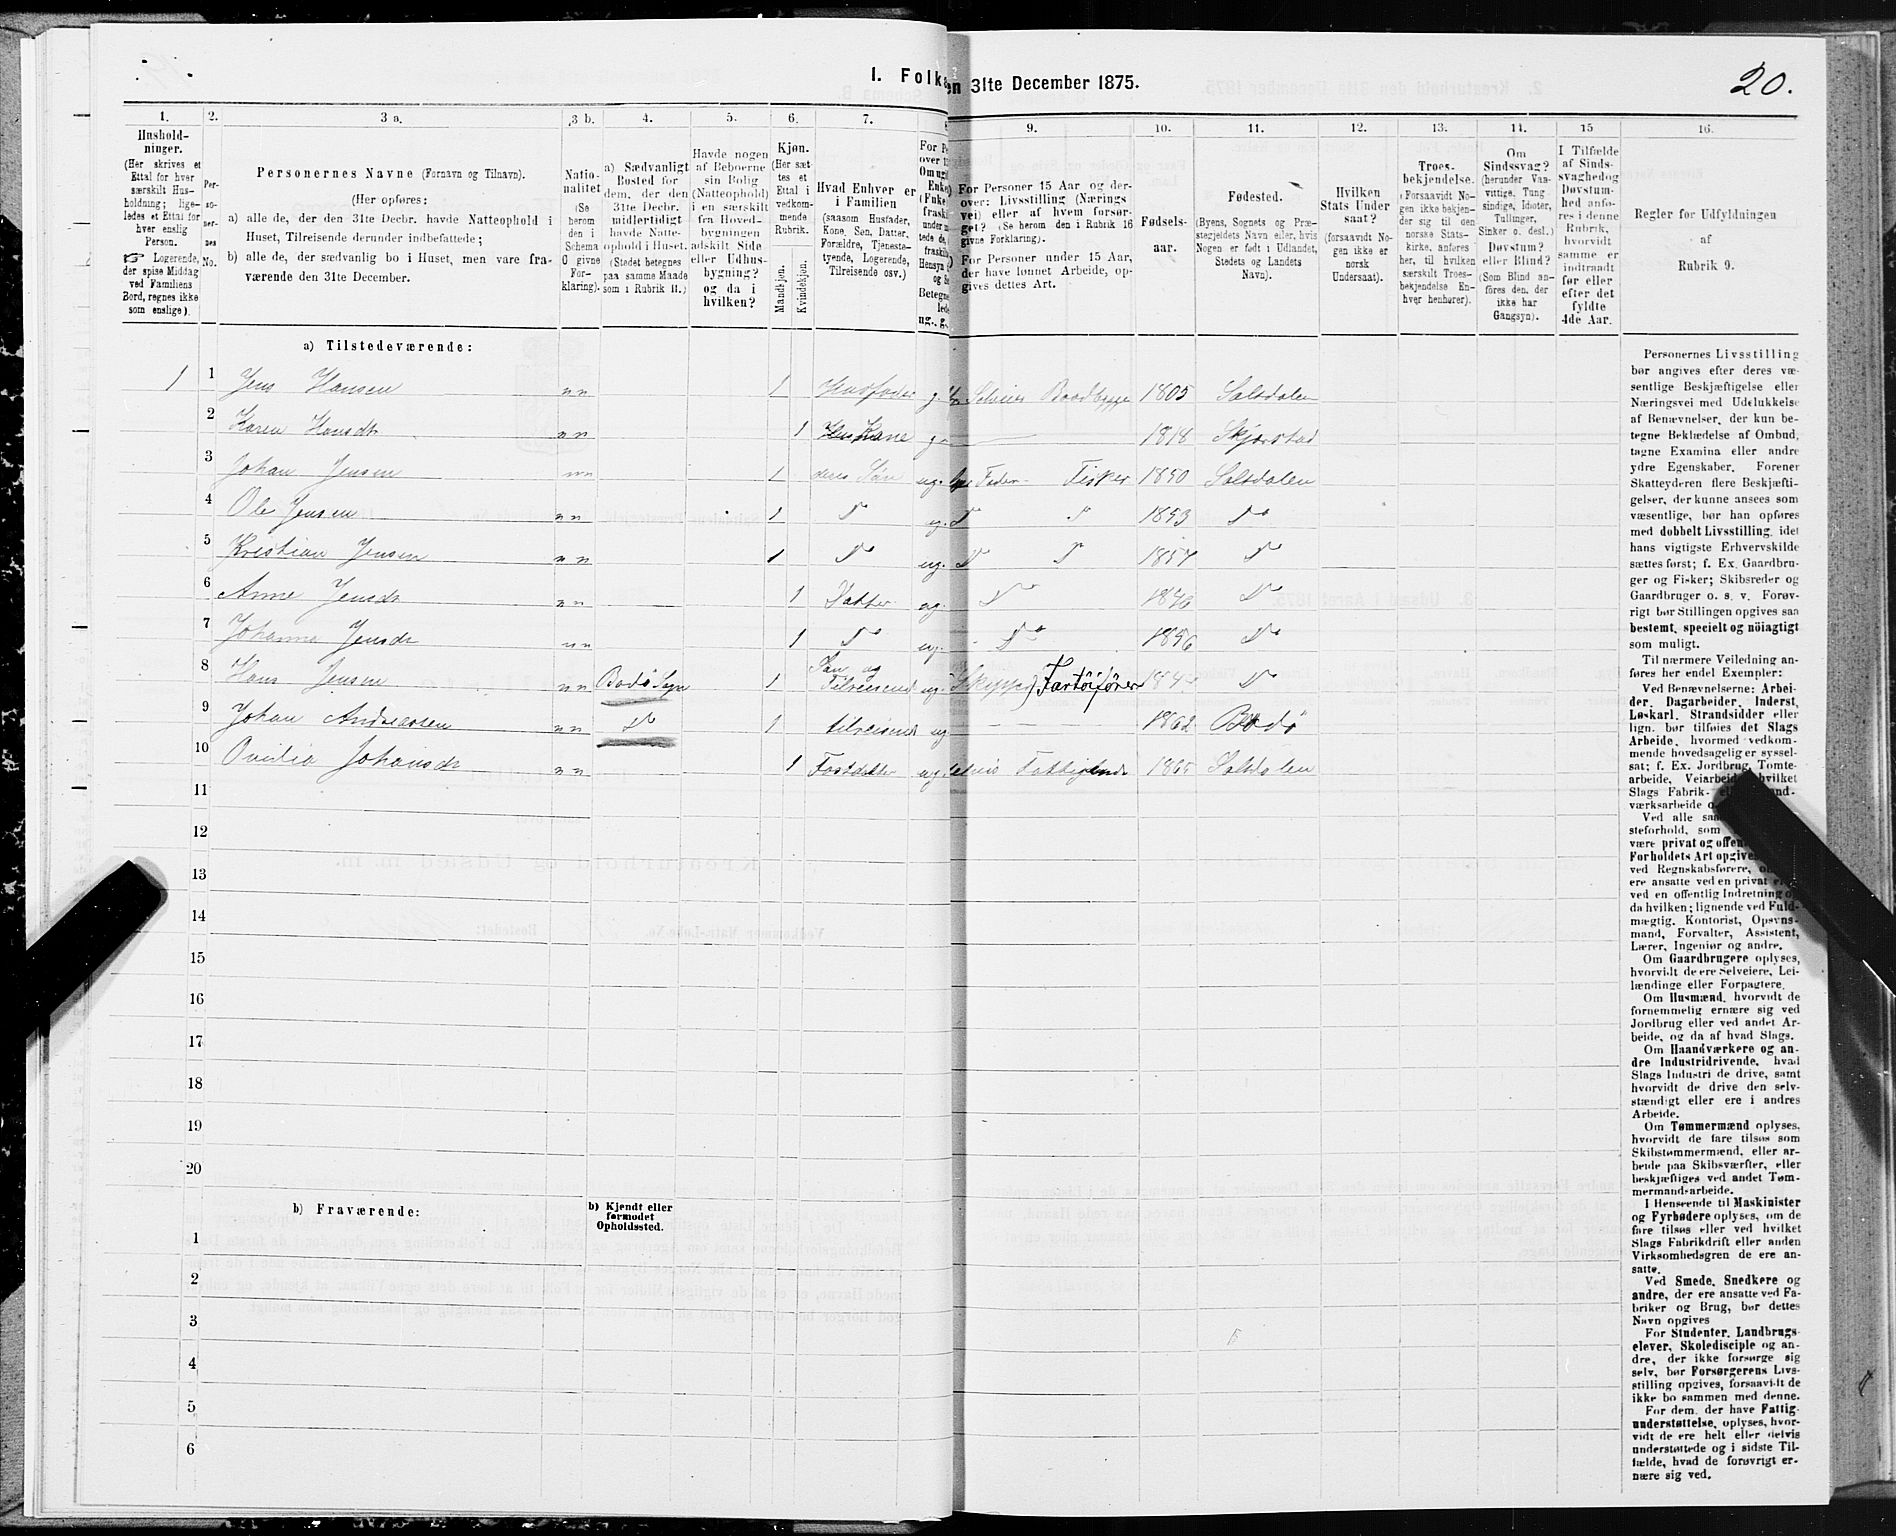 20.
1. Folk en 31te December 1875.
1. 2. 3 a. 3 b. 4. 5. 6. 7. 8 9. 10. 11. 12. 13. 14. 15 16.
Hushold-
ninger.
(Her skrives et
Ettal for hver
særskilt Hus-
holdning; lige-
ledes et Ettal for
hver enslig
Person.
☞ Logerende,
der spise Middag
ved Familiens
Bord, regnes ikke
som enslige).
Per-
so-
ner-
nes
No.
Personernes Navne (Fornavn og Tilnavn).
(Her opføres:
a) alle de, der den 31te Decbr. havde Natteophold i
Huset, Tilreisende derunder indbefattede;
b) alle de, der sædvanlig bo i Huset, men vare fra-
værende den 31te December.
Natio-
nalitet
(Se
herom
den i
Schema
C givne
For-
klaring).
a) Sædvanligt
Bosted for
dem, der den
31te Decbr.
midlertidigt
havde Natte-
ophold i Huset.
(Stedet betegnes
paa samme Maade
som i Rubrik 11.)
Havde nogen
af Beboerne
sin Bolig
(Natteophold)
i en særskilt
fra Hoved-
bygningen
adskilt Side
eller Udhus-
bygning?
og da i
hvilken?
Kjøn.
(Her sæt-
tes et
Ettal i
vedkom-
mende
Rubrik.
Mandkjøn.
Kvindekjøn.
Hvad Enhver er
i Familien
(saasom Husfader,
Kone, Søn, Datter,
Forældre, Tjeneste-
tyende, Logerende,
Tilreisende osv.)
For Personer 15 Aar og der-
over: Livsstilling (Nærings
vei) eller af hvem forsør-
get? (Se herom den i Rubrik 16
givne Forklaring).
For Personer under 15 Aar,
der have lønnet Arbeide, op-
gives dettes Art.
Fødsels-
aar.
Fødested.
(Byens, Sognets og Præ-
stegjeldets Navn eller, hvis
Nogen er født i Udlandet,
Stedets og Landets
Navn).
Hvilken
Stats Under
saat?
(forsaavidt No-
gen ikke er
norsk
Undersaat).
Troes-
bekjendelse.
(Forsaavidt No-
gen ikke bekjen-
der sig til den
norske Stats-
kirke, anføres
her, til hvilken
særskilt Troes-
bekjendelse En-
hver henhører).
Om
Sindssvag?
(herunder Van-
vittige, Tung
sindige, Idioter,
Tullinger,
Sinker o. desl.)
Døvstum?
eller Blind?
(Som Blind an-
føres den, der
ikke har
Gangsyn).
I Tilfælde
af Sinds-
svaghed og
Døvstum-
hed anfø-
res i denne
Rubrik,
hvorvidt
samme er
indtraadt
før eller
efter det
fyldte
4de Aar.
Regler for Udfyldningen
af
Rubrik 9.
a) Tilstedeværende:
1 1 Jens Hansen nn 1 Husfader g. Selveier Baadbygger 1805 Saltdalen
2 Karen Hansdtr nn 1 Kone g. 1818 Skjerstad
3 Johan Jensen nn 1 deres Søn ug. Fader Fisker 1850 Saltdalen
4 Ole Jensen nn 1 Do ug. Do Do 1853 Do
5 Kristian Jensen nn 1 Do ug. Do Do 1857 Do
6 Anne Jensdr nn 1 Datter ug. Do 1846 Do
7 Johanna Jensdr nn 1 Do ug. Do 1856 Do
8 Hans Jensen nn Bodø Sogn 1 Søn og Tilreisende ug. (Skipper) Fartøifører Do
9 Johan Andreassen nn Do 1 tilreisende ug 1862 Bodø
10 Johansdr nn 1 Fostdatter ug delvis Fattigunds 1865 Saltdalen
11
12
13
14
15
16
17
18
19
20
b) Fraværende:
b) Kjendt eller
formodet
Opholdssted.
1
2
3
4
5
6
Personernes Livsstilling
bør angives efter deres væ-
sentlige Beskjæftigelse eller
Næringsvei med Udelukkelse
af Benævnelser, der kun be-
tegne Beklædelse af Ombud,
tagne Examina eller andre
ydre Egenskaber. Forener
Skatteyderen flere Beskjæfti-
gelser, der kunne ansees som
væsentlige, bør han opføres
med dobbelt Livsstilling, idet
hans vigtigste Erhvervskilde
sættes først; f. Ex. Gaardbru-
ger og Fisker; Skibsreder og
Gaardbruger o. s. v. Forøv-
rigt bør Stillingen opgives saa
bestemt, specielt og nöiagtigt
som muligt.
Til nærmere Veiledning an-
føres her endel Exempler:
Ved Benævnelserne: Arbei-
der, Dagarbeider, Inderst,
Løskarl, Strandsidder eller
lign. bør tilføies det Slags
Arbeide, hvormed vedkom-
mende hovedsagelig er syssel-
sat; f. Ex. Jordbrug, Tomte-
arbeide, Veiarbeide, hvilket
Slags Fabrik-
værksarbeide
Ved alle
steforhold, som
være privat og
Forholdets Art opgives
ved Regnskabsførere,
ere ansatte ved en privat
ved en offentlig Indretning
da hvilken; lignende ved Fuld-
mægtig, Kontorist, Opsyns-
mand, Forvalter, Assistent,
Lærer, Ingeniør og andre.
Om Gaardbrugere oplyses,
hvorvidt de ere Selveiere, Lei-
lændinge eller Forpagtere.
Om Husmænd, hvorvidt de
fornemmelig ernære sig ved
Jordbrug eller ved andet Ar-
beide, og da af hvad Slags.
Om Haandværkere og an-
dre Industridrivende, hvad
Slags Industri de drive, samt
hvorvidt de drive den selv-
stændigt eller ere i andres
Arbeide.
Om Tømmermænd oplyses,
hvorvidt de fare tilsøs som
Skibstømmermænd, eller ar-
beide paa Skibsværfter, eller
beskjæftiges ved andet Tøm-
mermandsarbeide.
I Henseende til Maskinister
og Fyrbødere oplyses, om de
fare tilsøs eller ved hvilket
Slags Fabrikdrift eller anden
Virksomhedsgren de ere an-
satte.
Ved Smede, Snedkere og
andre, der ere ansatte ved Fa-
briker og Brug, bør dettes
Navn opgives
For Studenter, Landbrugs-
elever, Skoledisciple og an-
dre, der ikke forsørge sig
selv, bør Forsørgerens Livs-
stilling opgives, forsaavidt de
ikke bo sammen med denne.
For dem, der have Fattig-
understøttelse, oplyses, hvor-
vidt de ere helt eller delvis
understøttede og i sidste Til-
fælde, hvad de forøvrigt er-
nære sig ved.